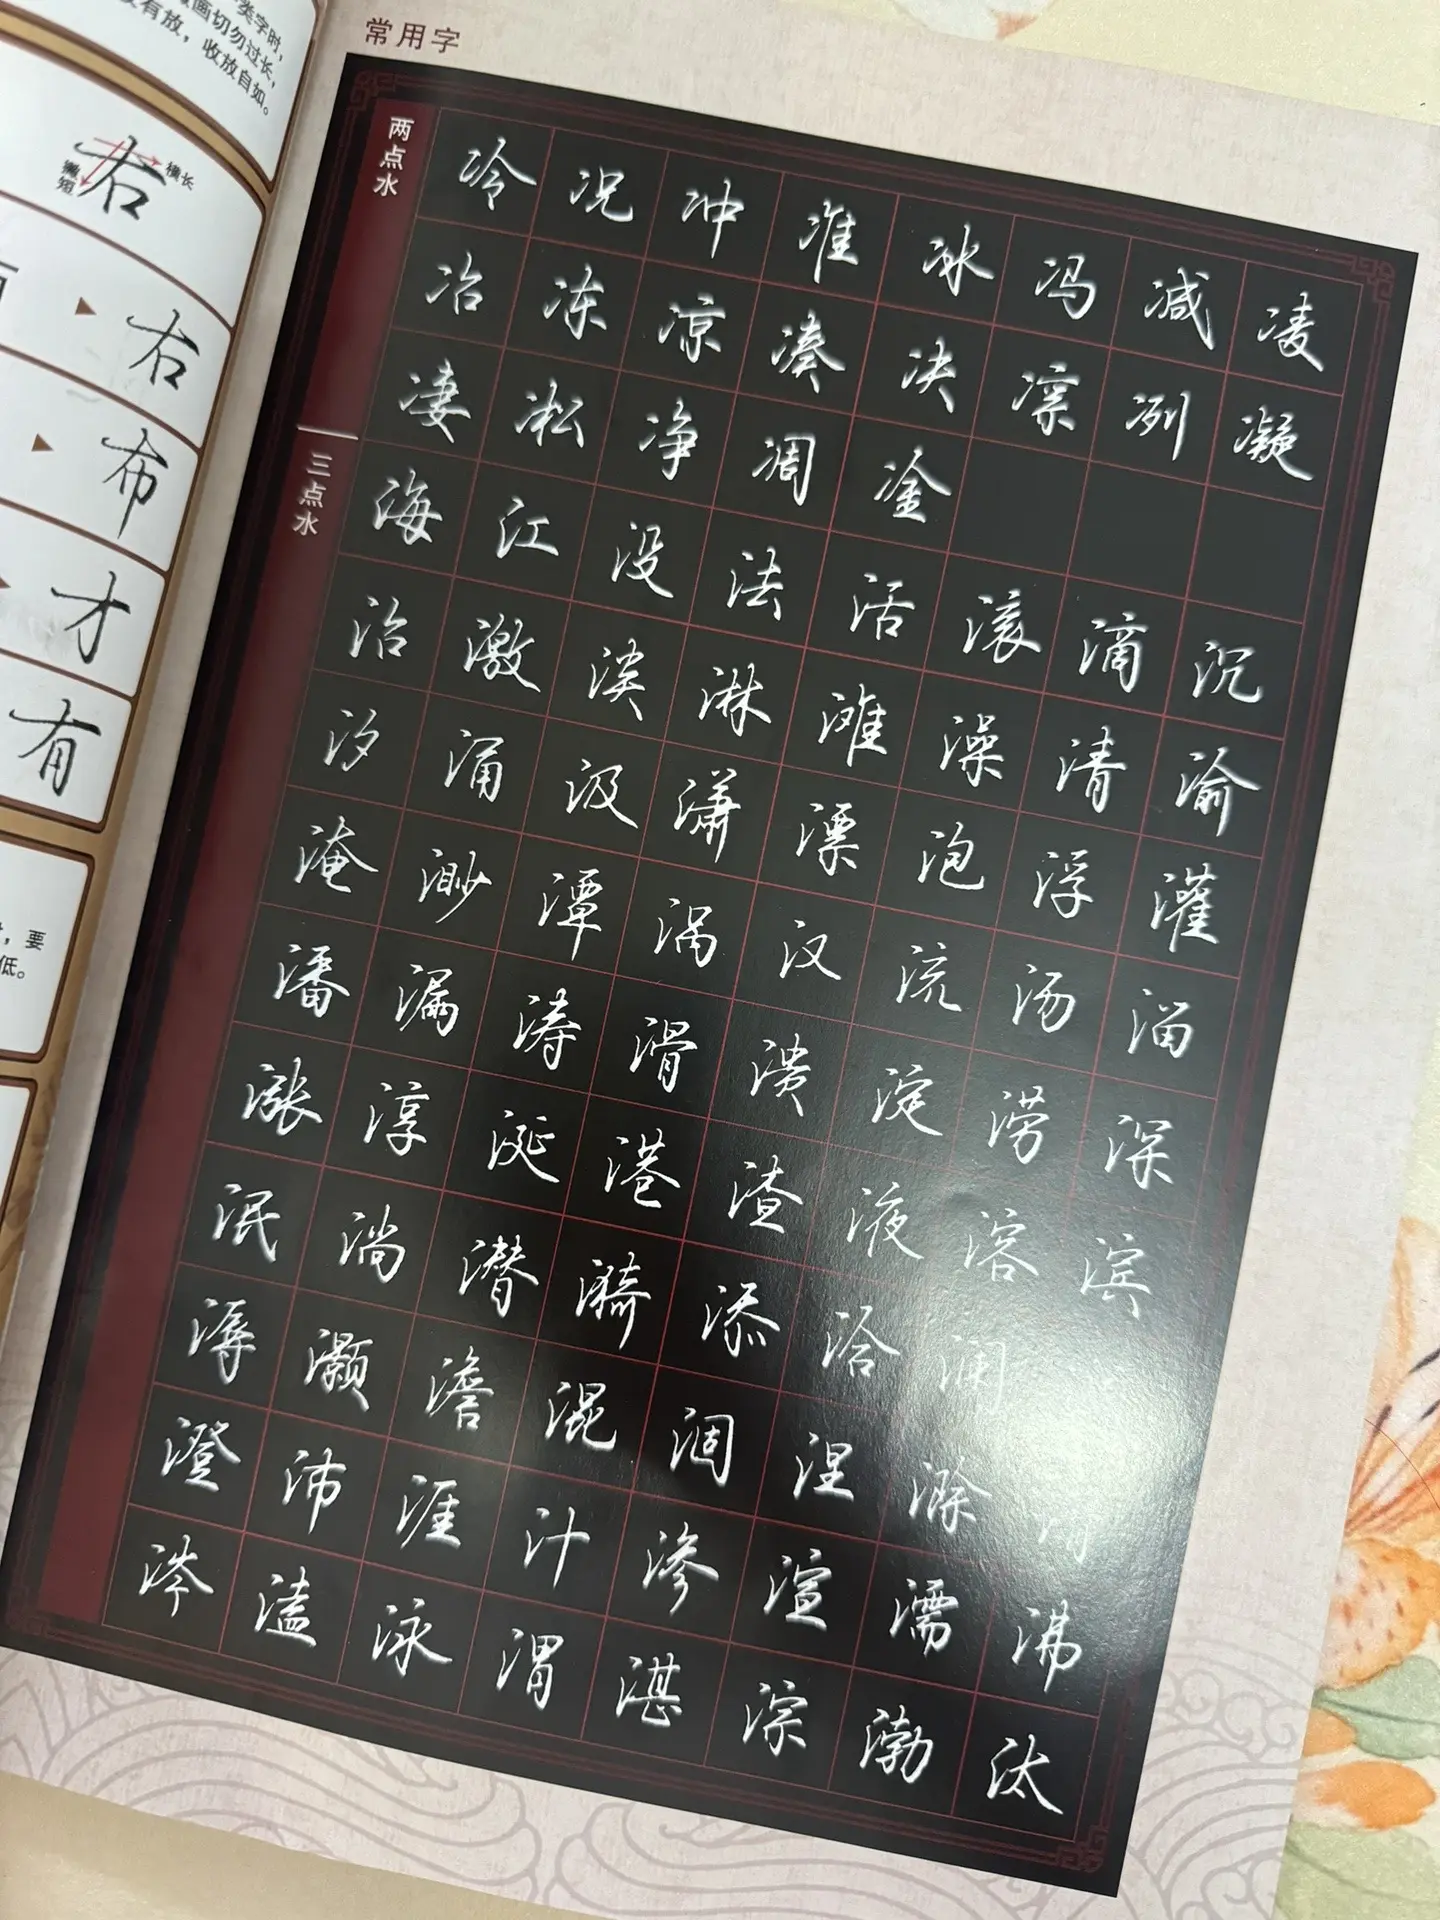 类字时，
画切勿过长，
有放，收放自如。
右
横长
撇短
右
布
才
有
，要
低。
常用字
两点水
冷况冲准冰冯减凌
冶冻凉凑决凛冽凝
凄凇净凋凎
三点水
海江没法活滚滴沉
治激淡淋滩澡清渝
汐涌汲潇漂泡浮灌
淹渺潭涡汉流汤溜
潘漏涛滑溃淀涝深
涨淳涎港渣液溶滨
泯淌潜漪添洽澜
潺灏澹混涸涅滁
澄沛涯汁渗渲濡沸
涔溘泳渭湛淙渤汰